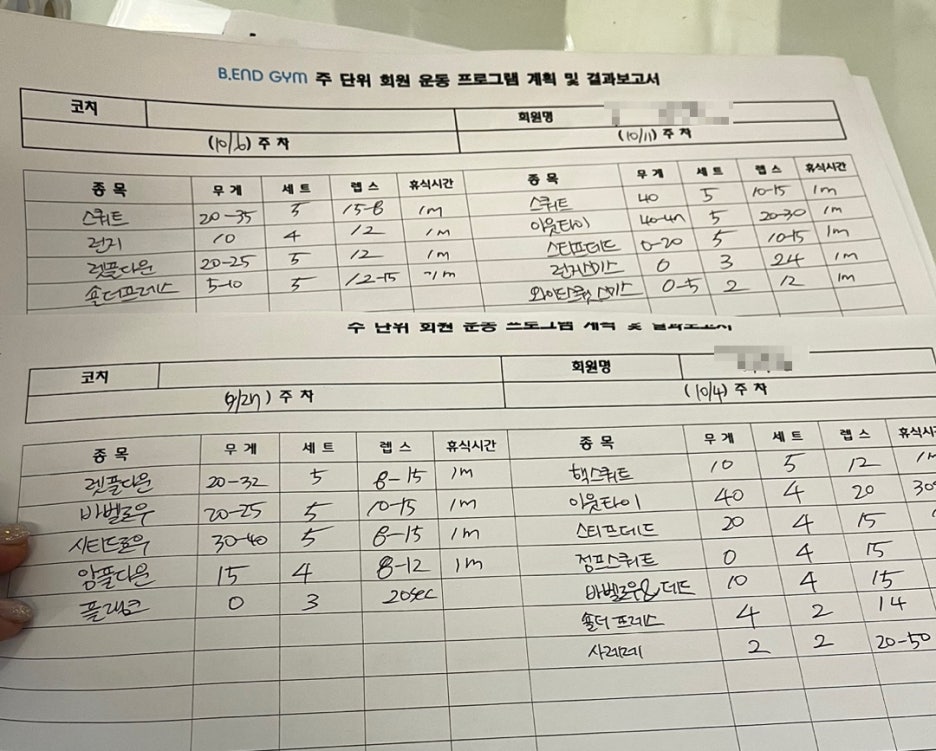 B.END GYM 주 단위 회원 운동 프로그램 계획 및 결과보고서
코치 회원명
(10/6) 주 차 (10/11) 주 차
종 목 무 게 세 트 렙 스 휴식시간 종 목 무 게 세 트 렙 스 휴식시간
스쿼트 20-35 5 15-8 1m 스쿼트 40 5 10-15 1m
런지 10 4 12 1m 아웃타이 40-47 5 20-30 1m
렛풀다운 20-25 5 12 1m 스티프데드 0-20 5 10-15 1m
숄더프레스 5-10 5 12-15 1m 런지스미스 0 3 24 1m
와이드스쿼트 스미스 0-5 2 12 1m
주 단위 회원 운동 프로그램 계획 및 결과보고서
코치 회원명
(9/27) 주 차 (10/4) 주 차
종 목 무 게 세 트 렙 스 휴식시간 종 목 무 게 세 트 렙 스 휴식시간
렛풀다운 20-32 5 8-15 1m 핵스쿼트 10 5 12 1m
바벨로우 20-25 5 10-15 1m 아웃타이 40 4 20 30
시티드로우 30-40 5 8-15 1m 스티프데드 20 4 15
암풀다운 15 4 8-12 1m 점프스쿼트 0 4 15
플랭크 0 3 20sec 바벨로우&데드 10 4 15
숄더 프레스 4 2 14
사레레 2 2 20-50